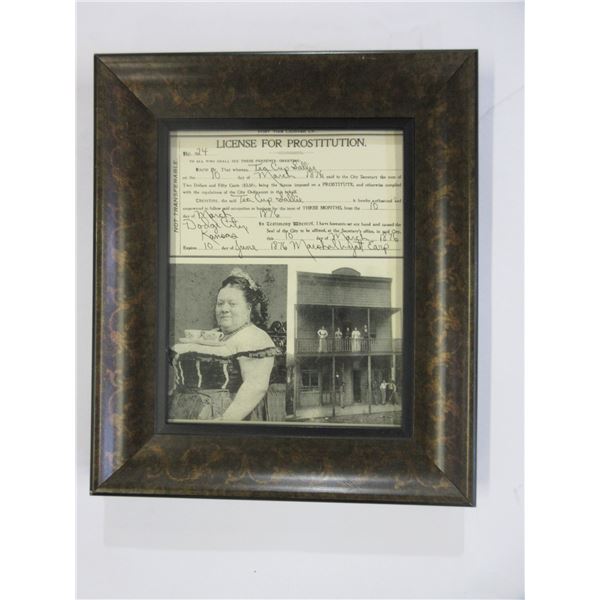 LICENSE FOR PROSTITUTION.
No. 24
NOT TRANSFERABLE
TO ALL WHO SHALL SEE THESE PRESENTS, GREETING:
KNOW YE, That whereas, Tea Cup Sallie
on the 10 day of March 1876 paid to the City Secretary the sum of
Two Dollars and Fifty Cents ($2.50), being the license imposed on a PROSTITUTE, and otherwise complied
with the regulations of the City Ordinance in this behalf.
THEREFORE, the said Tea Cup Sallie is hereby authorized and
empowered to follow said occupation or business for the term of THREE MONTHS, from the 10
day of March 1876
Dodge City In Testimony Whereof, I have hereunto set my hand and caused the
Kansas Seal of the City to be affixed, at the Secretary's office, in said City,
this 10 day of March 1876
Expires 10 day of June 1876 Marshal Wyatt Earp